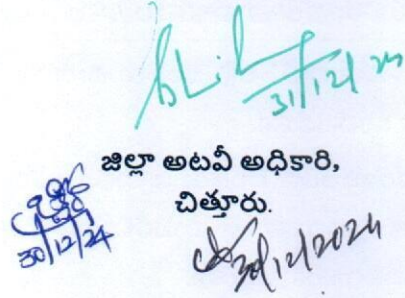 31/12/24
జిల్లా అటవీ అధికారి,
చిత్తూరు.
30/12/24
30/12/2024